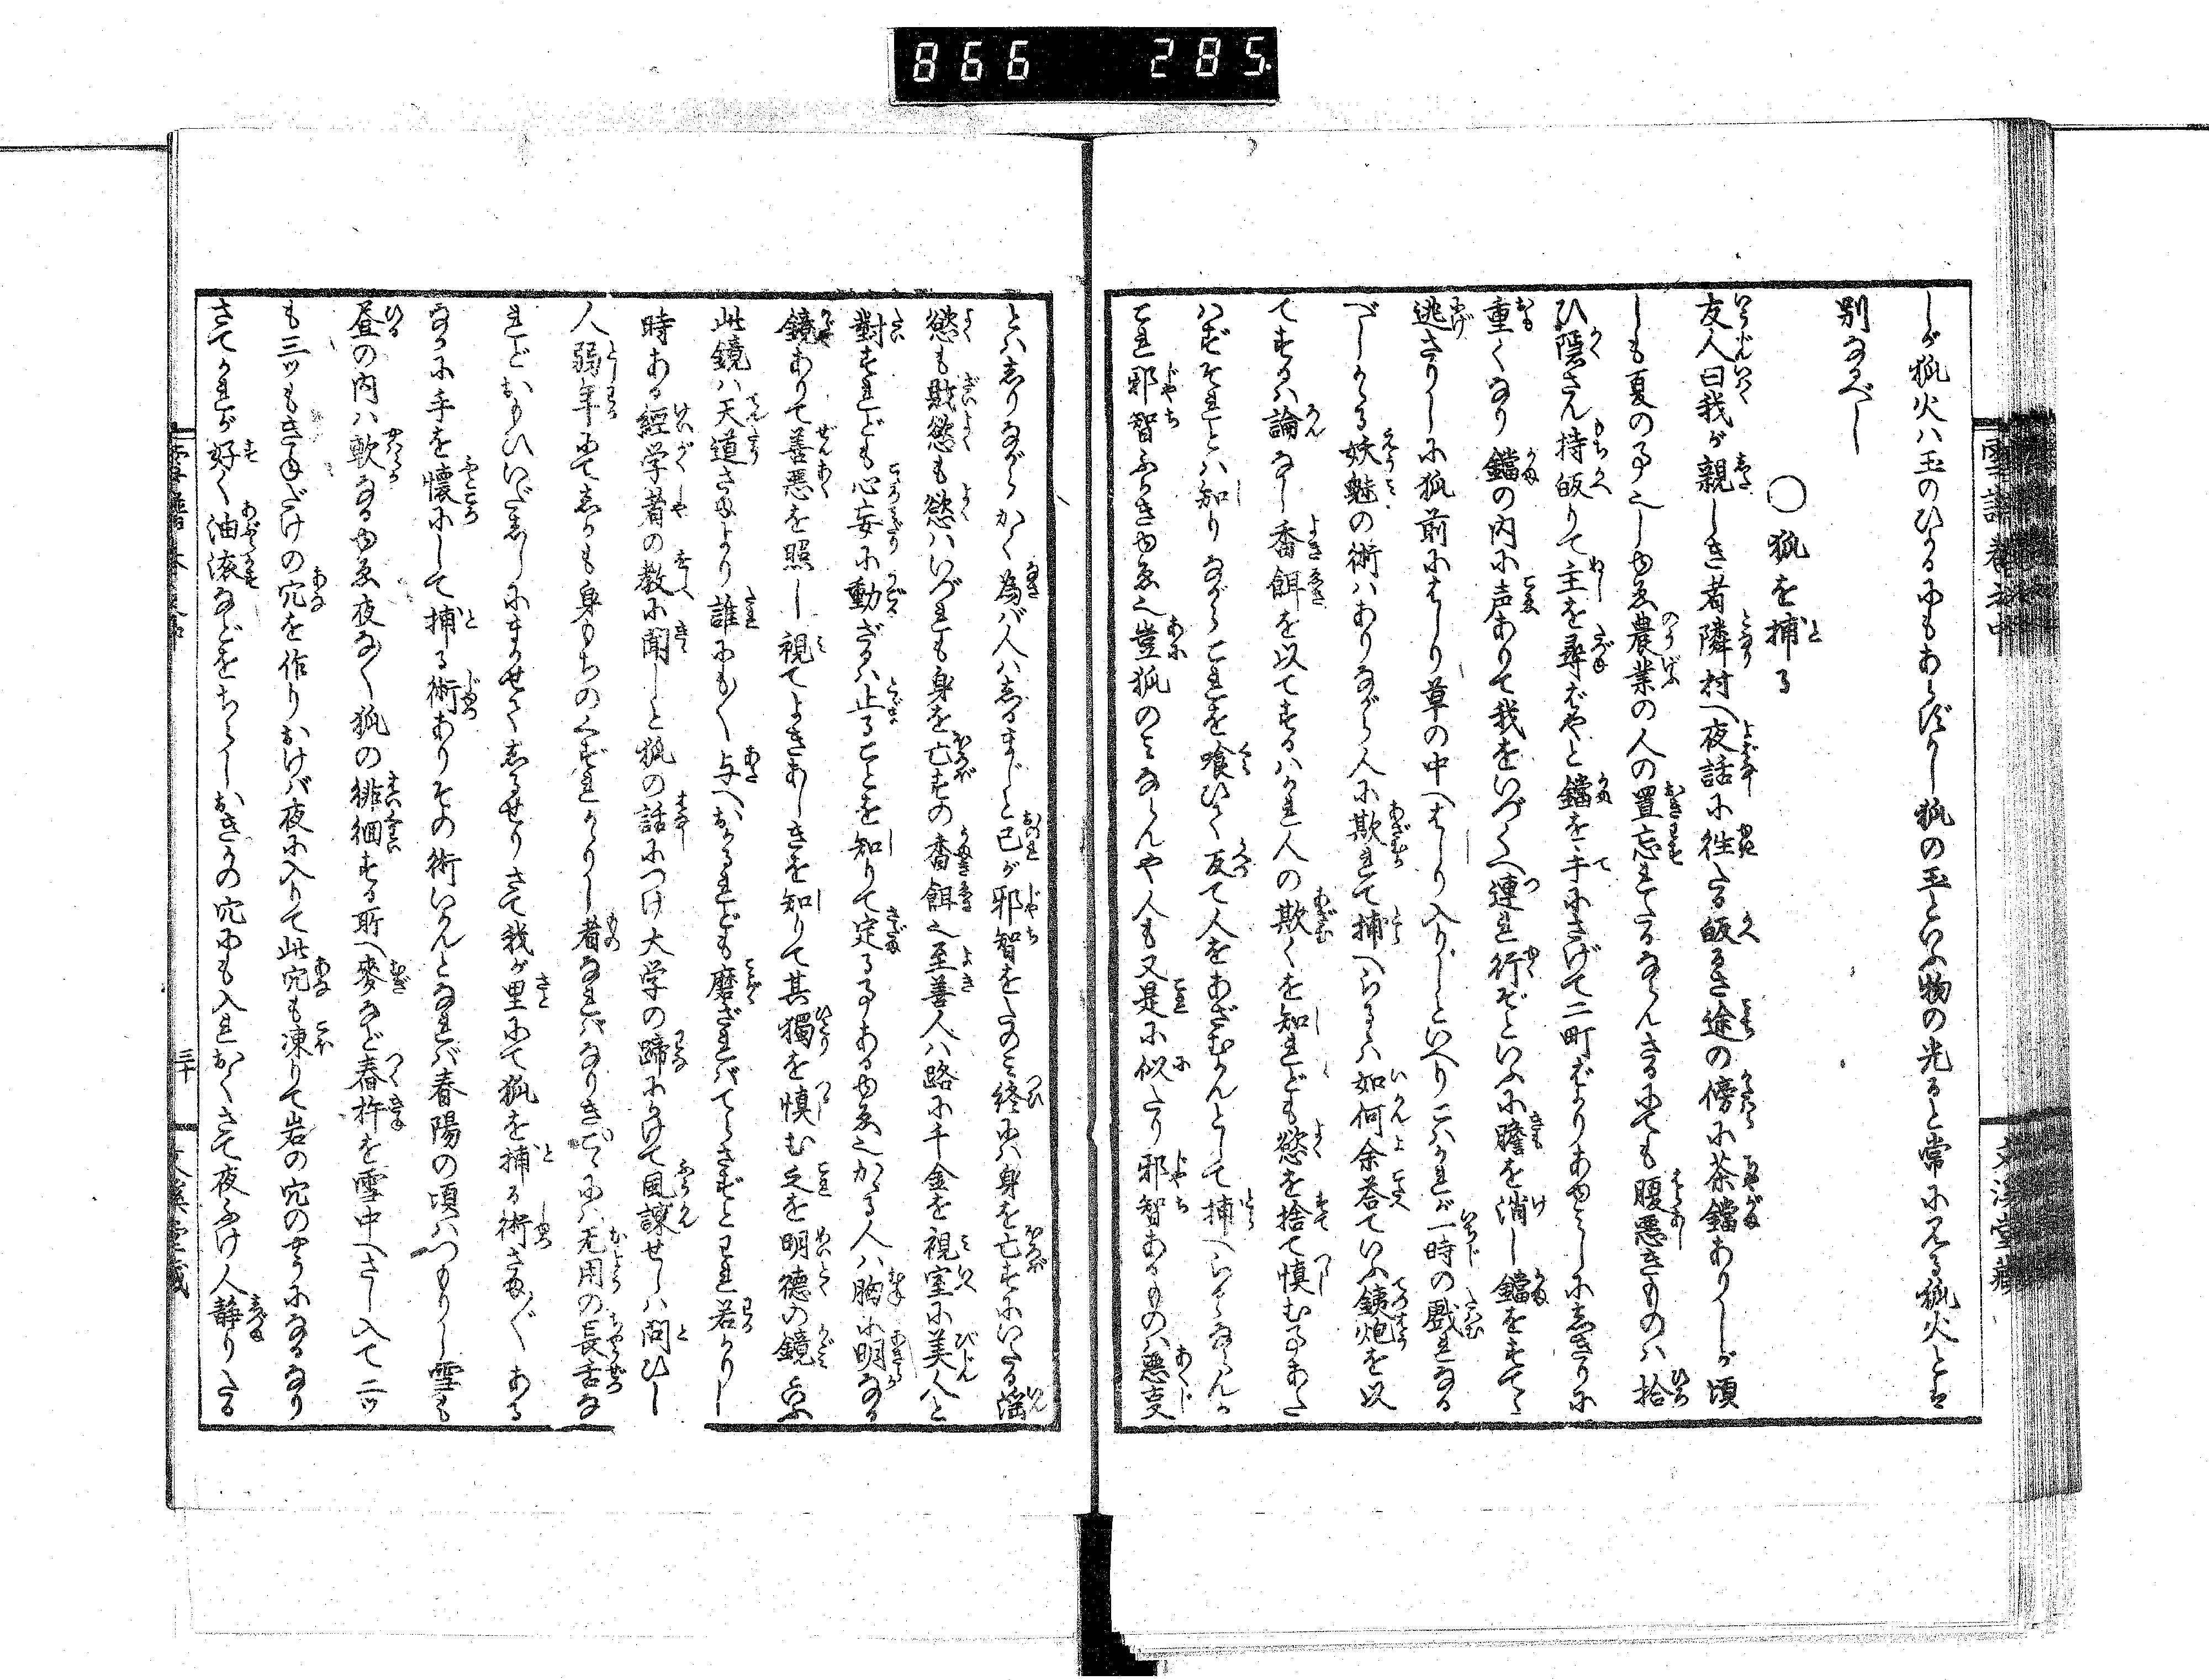 866 285
しが狐火ハ玉のひかるにもあらざりし狐の玉といふ物の光ると常に見る狐火とは
別なるべし
○狐を捕る
友人曰我が親しき者隣村へ夜話に徃たる皈るさ途の傍に茶鐺ありしが頃
しも夏の事也しゆゑ農業の人の置忘れたるならんさるにても腹悪きものハ拾
ひ隠さん持皈りて主を尋ばやと鐺を手にさげて二町ばかりあゆみしにしきりに
重くなり鐺の内に声ありて我をいづくへ連れ行ぞといふに膽を消し鐺をすてゝ
逃さりしに狐前にはしり草の中へはしり入りしといへりこハかれが一時の戲れなる
べしかゝる妖魅の術ハありながら人に欺れて捕へらるゝハ如何余答ていふ銕炮を以
てするハ論なし香餌を以てするハかれ人の欺くを知れども慾を捨て慎む事あた
ハずそれとハ知りながらこれを喰ひて反て人をあざむかんとして捕へらるゝならんか
これ邪智ふかきゆゑ也豈狐のみならんや人も又是に似たり邪智あるものハ悪㕝
とハしりながらかく為バ人ハしるまじと己が邪智をたのみ終にハ身を亡すにいたる淫
慾も財慾も慾ハいづれも身を亡すの香餌也至善人ハ路に千金を視室に美人と
對すれども心妄に動ざるハ止ることを知りて定る事あるゆゑ也かゝる人ハ胸に明なる
鏡ありて善悪を照し視てよきあしきを知りて其獨を慎む之を明徳の鏡といふ
此鏡ハ天道さまより誰にも〳〵与へおかるれども磨ざれバてらさずとわれ若かりし
時ある經学者の教に聞しと狐の話につけ大学の蹄にかけて風諫せしハ問ひし
人弱年にてしかも身もちのくずれかゝりし者なれバなりきこゝにハ无用の長舌な
れどおもひいだしゝにまかせてしるせりさて我が里にて狐を捕る術さま〴〵ある
なかに手を懐にして捕る術ありその術いかんとなれバ春陽の頃ハつもりし雪も
昼の内ハ軟なるゆゑ夜な〳〵狐の徘徊する所へ麥など舂杵を雪中へさし入て二ッ
も三ッもきねだけの穴を作りおけバ夜に入りて此穴も凍りて岩の穴のやうになるなり
さてかれが好く油滓などをちらしおきかの穴にも入れおくさて夜ふけ人静りたる
三十